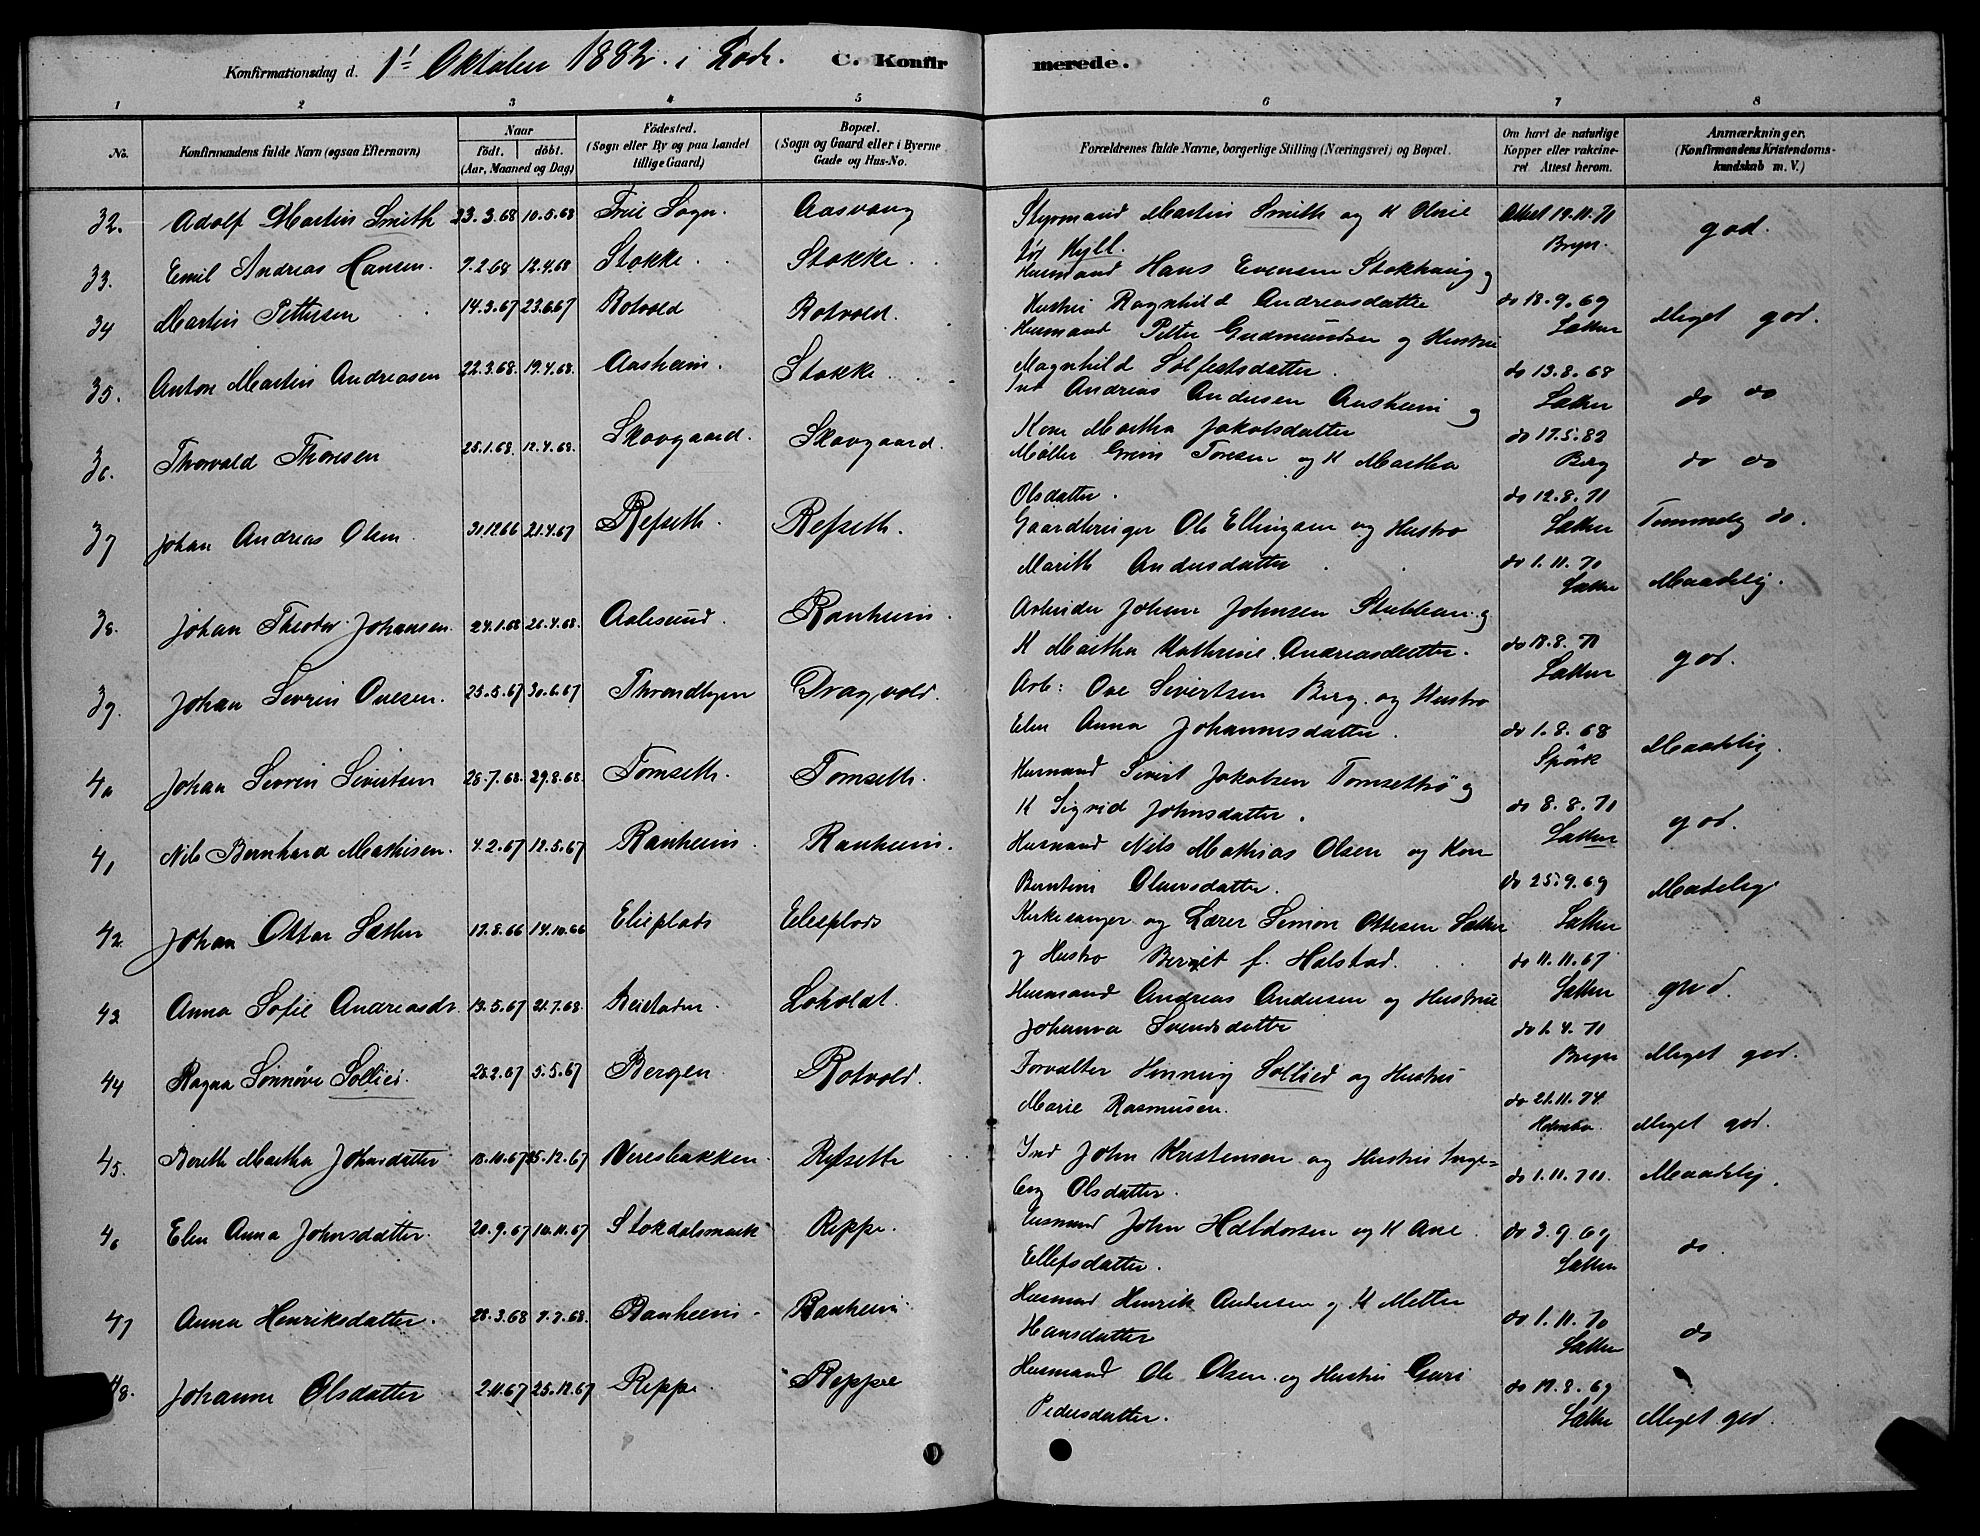 Konfirmationsdag d. 1ste Oktober 1882 i Lade. C. Konfirmerede.
1 2 3 4 5 6 7 8
No. Konfirmandens fulde Navn (ogsaa Efternavn) Naar födt. döbt. (Aar, Maaned og Dag) Födested. (Sogn eller By og paa Landet tillige Gaard) Bopæl. (Sogn og Gaard eller i Byerne Gade og Hus-No. Forældrenes fulde Navne, borgerlige Stilling (Næringsvei) og Bopæl. Om havt de naturlige Kopper eller vakcineret Attest herom. Anmærkninger. (Konfirmandens Kristendomskundskab m. V.)
32. Adolf Martin Smith 23.3.68 10.5.68 Sogn. Aasvang Styrmand Martin Smith og K Oline Attest 19.11.71
før Hyll. Bryn. god.
33. Emil Andreas Hansen. 7.2.68 12.4.68 Stokke Stokke Husmand Hans Evensen Stokhaug og
Hustru Ragnhild Andreasdatter do 18.9.69
34 Martin Pettersen 14.3.67 23.6.67 Rotvold Rotvold. Husmand Peter Gudmundsen og Hustru Sæther Meget god.
Magnhild Solfestsdatter. do 13.8.68
35. Anton Martin Andreasen 22.3.68. 19.4.68. Aasheim. Stokke Ind Andreas Andersen Aasheim og Sæther do do
Kone Martha Jakobsdatter do 17.5.82
36. Thorvald Thoresen 25.1.68. 12.4.68. Skovgaard. Skovgaard. Møller Toresen og K Martha Berg do do
Olsdatter. do 12.8.71
37 Johan Andreas Olsen 31.12.66 21.4.67 Refseth. Refseth. Gaardbruger Ole Ellingsen og Hustro Sæther Temmelig do.
Marith Andersdatter do 1.11.70
Sæther Maadelig.
38. Johan Theodor Johansen. 24.1.68 26.4.68. Aalesund. Ranheim. Arbeider Johan Johnsen Stubban og
K Martha Kathrine Andreasdatter. do 18.8.71
Sæther god.
39. Johan Sevrin Ovesen. 25.5.67 30.6.67 Throndhjem Dragvold. Arb: Ove Sivertsen Berg og Hustro
Elen Anna Johannesdatter. do 1.8.68
Spörk Maadelig.
40 Johan Sevrin Sivertsen 26.7.68. 29.8.68. Tomseth. Tomseth. Husmand Sivert Jakobsen Tomsethø og
K Sigrid Johnsdatter. do 8.8.71
Sæther god.
41 Nils Bernhard Mathisen. 4.2.67 12.5.67 Ranheim. Ranheim. Husmand Nils Mathias Olsen og Kone
Berntine Olausdatter. do 25.9.69 Maadelig.
42. Johan Ottar Sæther 17.8.66 14.10.66 Elieplads Elieplads Kirkesanger og Lærer Simon Ottesen Sæther Sæther
og Hustro Bereet f. Halstad. do 11.11.67
Sæther god.
43 Anna Sofie Andreasdr. 13.5.67 21.7.68. Beistaden Loholdt. Husmand Andreas Andersen og Hustru
Johanna Svendsdatter do 1.4.71
Bryn Meget god.
44 Ragna Sønnøve Sollied. 26.2.67 5.5.67 Bergen. Rotvold. Forvalter Henning Sollied og Hustru
Marie Rasmusen. do 21.11.74
Meget god.
45. Bereth Martha Johnsdatter 18.10.67 25.12.67 Veresbakken Refseth Ind John Kristensen og Hustru Inge=
borg Olsdatter. do 1.11.70. Maadelig.
46 Elen Anna Johnsdatter. 20.9.67 10.11.67 Stokdalsmark Reppe. Husmand John Haldorsen og K Ane
Ellefsdatter. do 3.9.69
Sæther do
47 Anna Henriksdatter. 28.3.68 7.7.68. Ranheim Ranheim Husmand Henrik Andersen og K Mette
Hansdatter do 1.11.70
Sæther do
48. Johanne Olsdatter 2.11.67 25.12.67 Reppe. Reppe Husmand Ole Olsen og Hustru Guri
Pedersdatter. do 19.8.69
Sæther Meget god.